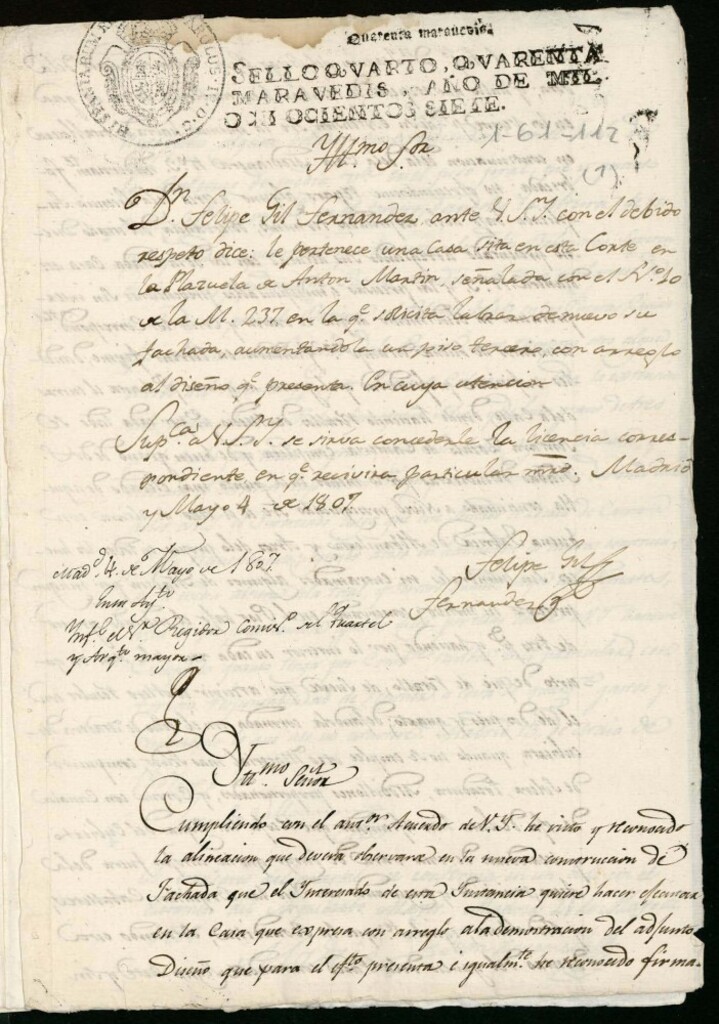 HISPANIARUM REX CAROLUS IV D.G.
Quarenta maravedis.
SELLO QVARTO, QVARENTA
MARAVEDIS, AÑO DE MIL
OCHOCIENTOS SIETE.
1-61-112
(1)
Yllmo. Sor
Dn. Felipe Gil Fernandez ante V.S.Y. con el debido
respeto dice: le pertenece una Casa sita en esta Corte en
la Plazuela de Anton Martin, señalada con el No. 10
de la M. 237 en la qe. solicita labrar de nuevo su
fachada, aumentandola un piso tercero, con arreglo
al diseño qe. presenta. En cuya atencion
Supca. a V.S.Y. se sirva concederle la licencia corres-
pondiente en qe. recivira particular mrd. Madrid
y Mayo 4 de 1807
Felipe Gil
Fernandez
Madd. 4 de Mayo de 1807
En su Aytto.
Ynfe. el Sr. Regidor Comiso. del Quartel
y Arqto. mayor.
Yllmo. Señor
Cumpliendo con el antor. Acuerdo de V.Y. he visto y reconocido
la alineacion que deverá observarse en la nueva construccion de
Fachada que el Interesado de esta Instancia quiere hacer egecutar
en la Casa que expresa con arreglo a la demostracion del adjunto
Diseño que para el efto. presenta é igualmte. he reconocido firma-